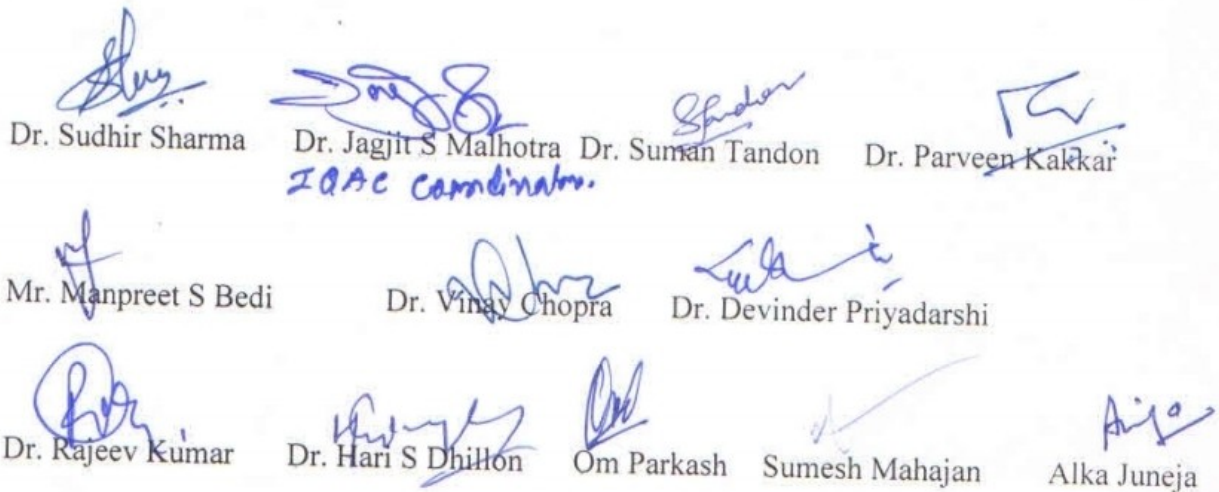 Dr. Sudhir Sharma Dr. Jagjit S Malhotra Dr. Suman Tandon Dr. Parveen Kakkar
IQAC Coordinator.
Mr. Manpreet S Bedi Dr. Vinay Chopra Dr. Devinder Priyadarshi
Dr. Rajeev Kumar Dr. Hari S Dhillon Om Parkash Sumesh Mahajan Alka Juneja